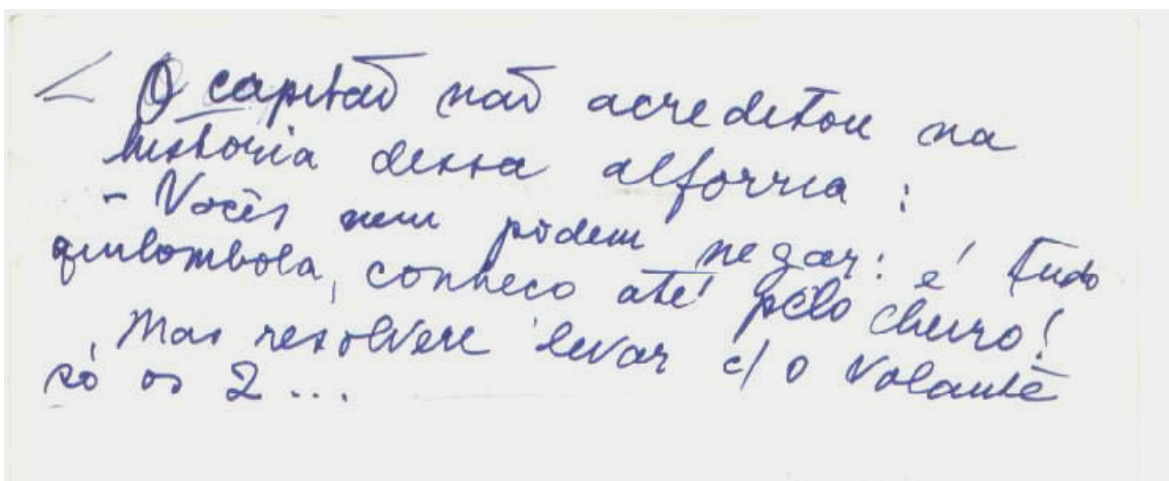 < O capitaõ naõ acreditou na
historia dessa alforria :
- Vocês nem pòdem negar : é tudo
quilombola, conheco até pèlo cheiro!
Mas resolvere levar c/ o Volante
só os 2 ...